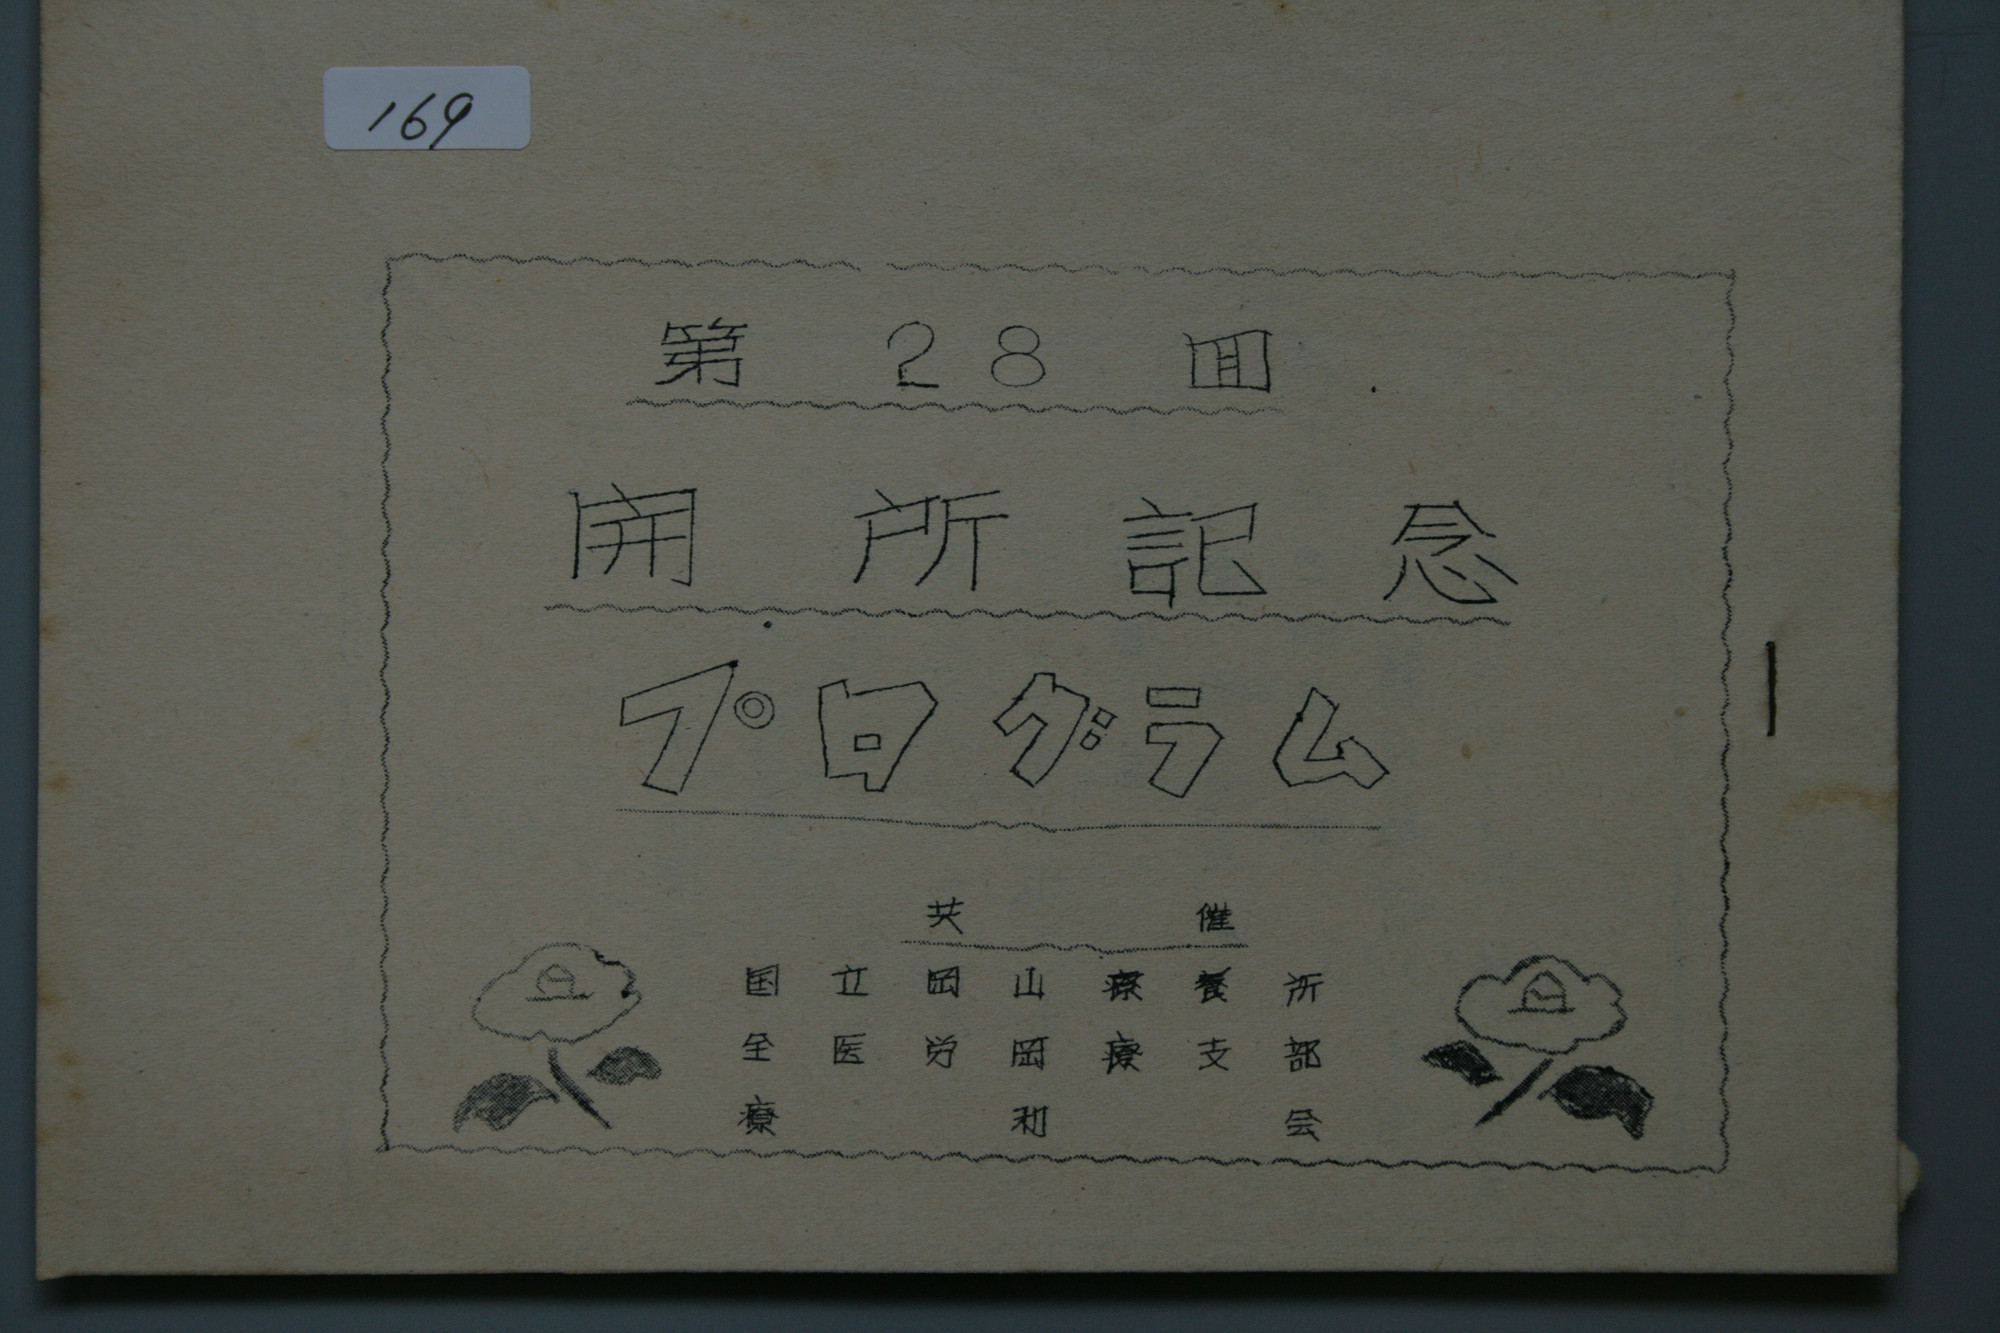 169
第28回
開所記念
プログラム
共催
国立岡山療養所
全医労岡療支部
療和会